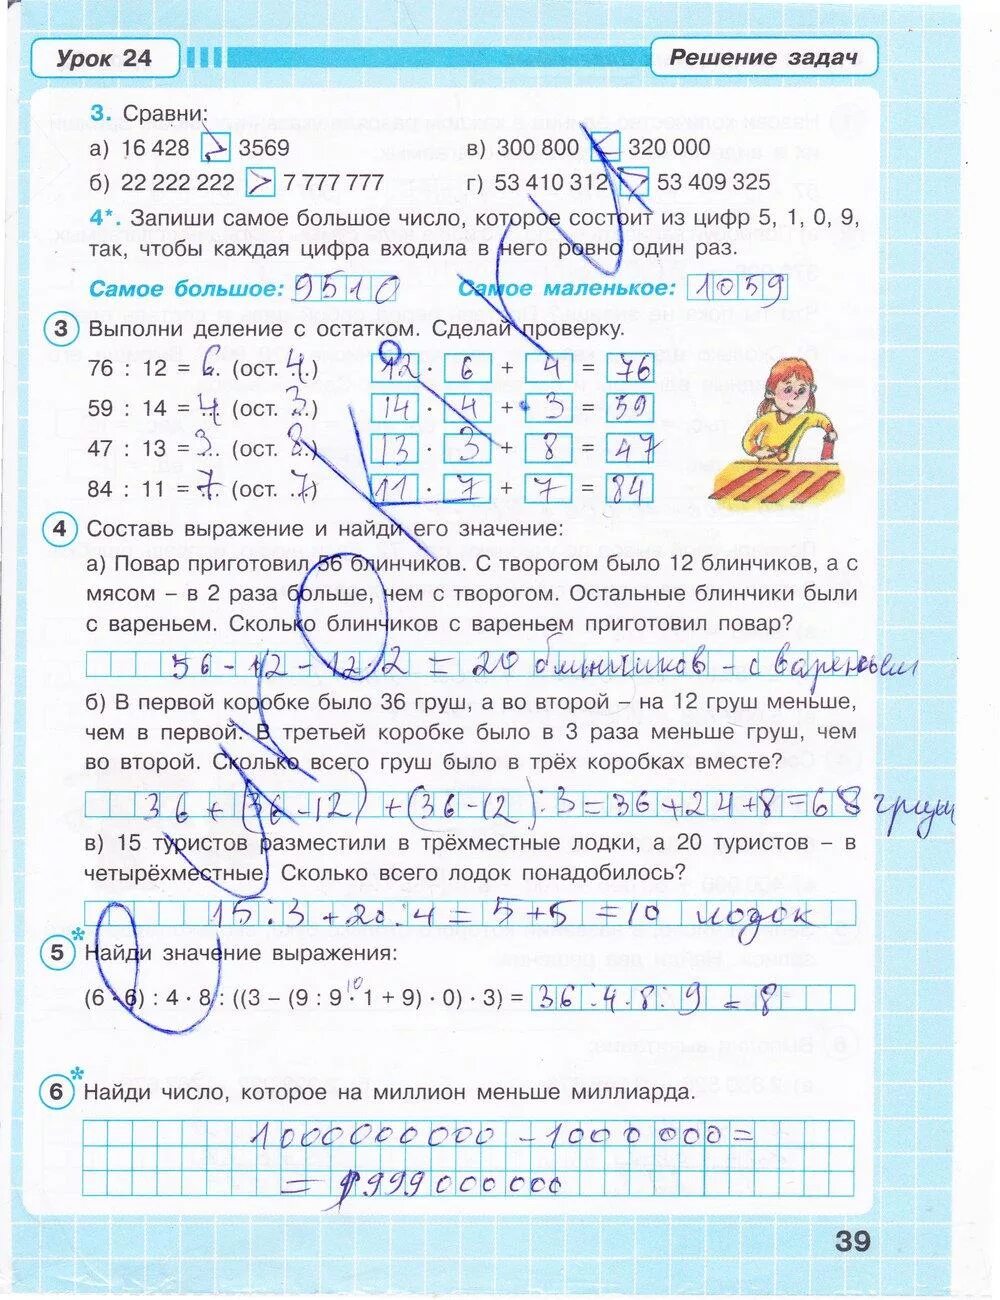 Урок 24
Решение задач
3. Сравни:
а) 16 428 > 3569
в) 300 800 < 320 000
б) 22 222 222 > 7 777 777
г) 53 410 312 > 53 409 325
4*. Запиши самое большое число, которое состоит из цифр 5, 1, 0, 9,
так, чтобы каждая цифра входила в него ровно один раз.
Самое большое: 9510 Самое маленькое: 1059
3 Выполни деление с остатком. Сделай проверку.
76 : 12 = 6 (ост. 4) 12 · 6 + 4 = 76
59 : 14 = 4 (ост. 3) 14 · 4 + 3 = 59
47 : 13 = 3 (ост. 8) 13 · 3 + 8 = 47
84 : 11 = 7 (ост. 7) 11 · 7 + 7 = 84
4 Составь выражение и найди его значение:
а) Повар приготовил 56 блинчиков. С творогом было 12 блинчиков, а с
мясом – в 2 раза больше, чем с творогом. Остальные блинчики были
с вареньем. Сколько блинчиков с вареньем приготовил повар?
56 - 12 - 12 · 2 = 20 блинчиков - с вареньем
б) В первой коробке было 36 груш, а во второй – на 12 груш меньше,
чем в первой. В третьей коробке было в 3 раза меньше груш, чем
во второй. Сколько всего груш было в трёх коробках вместе?
36 + (36 - 12) + (36 - 12) : 3 = 36 + 24 + 8 = 68 груш
в) 15 туристов разместили в трёхместные лодки, а 20 туристов – в
четырёхместные. Сколько всего лодок понадобилось?
15 : 3 + 20 : 4 = 5 + 5 = 10 лодок
5* Найди значение выражения:
10
(6 · 6) : 4 · 8 : ((3 – (9 : 9 · 1 + 9) · 0) · 3) = 36 : 4 · 8 : 9 = 8
6* Найди число, которое на миллион меньше миллиарда.
1000000000 - 1000000 =
= 999000000
39